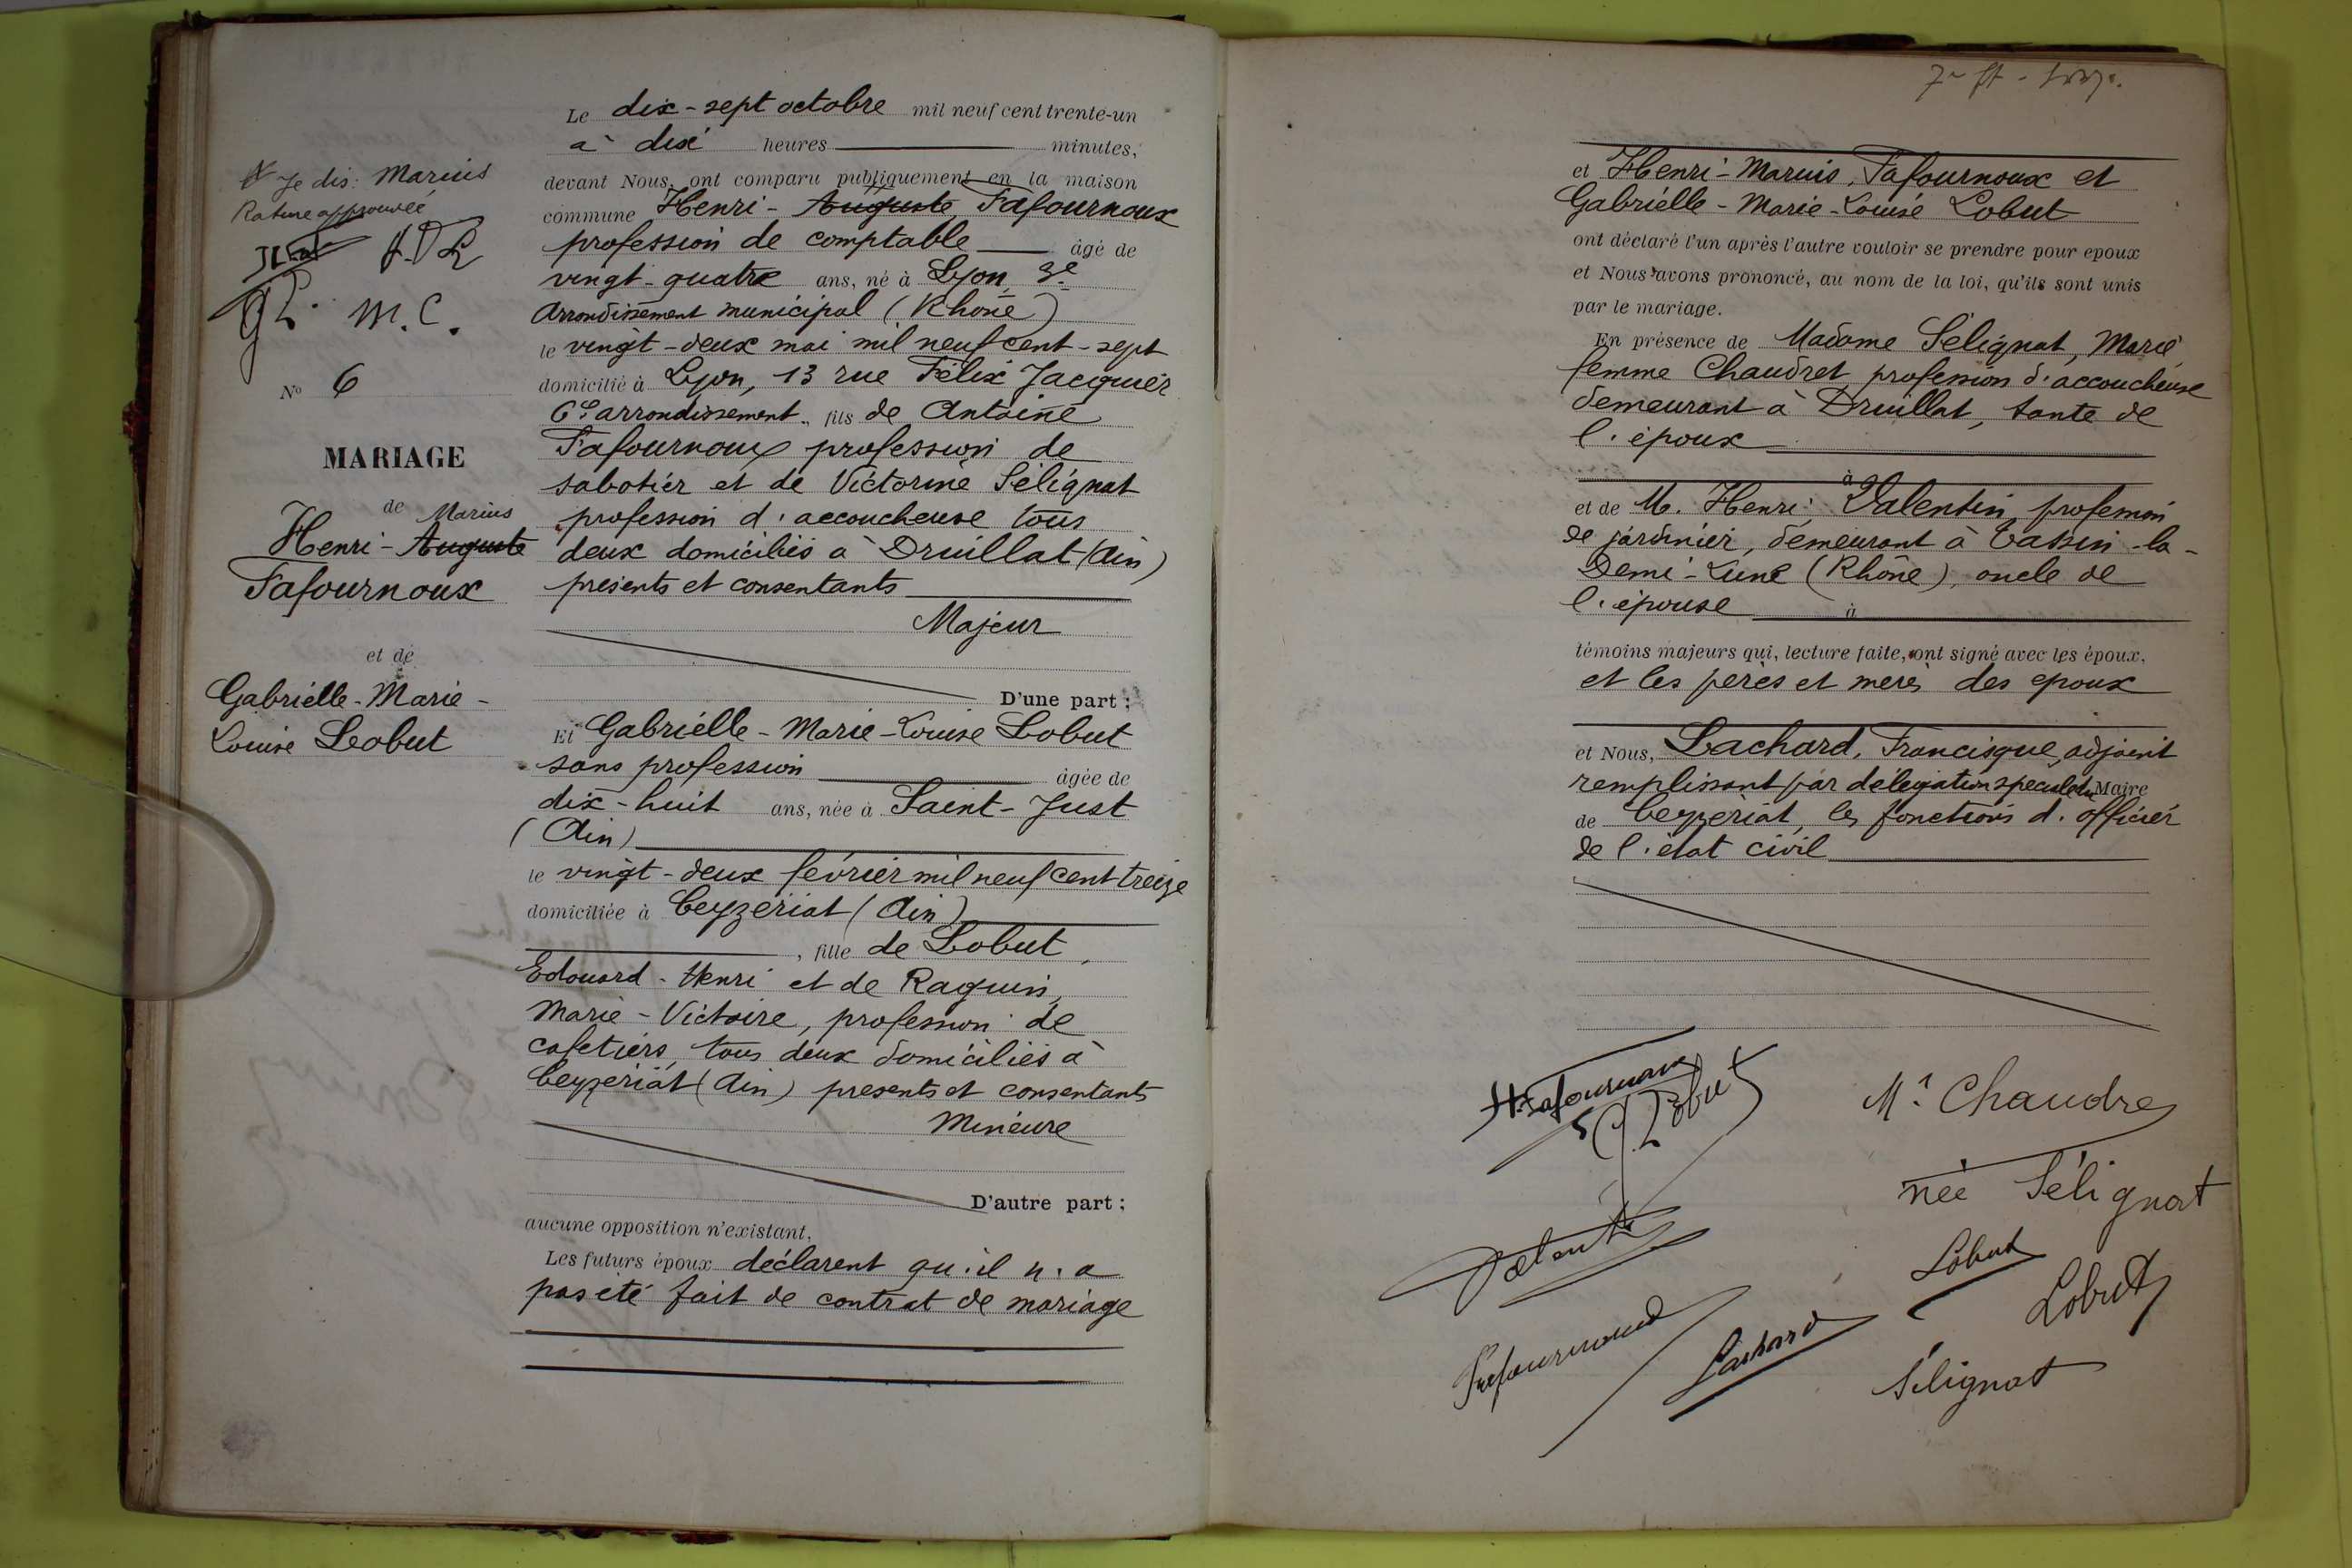 Je dis: Marius
Rature approuvée
M.C.
N° 6
MARIAGE
de Marius
Henri - Auguste
Fafournoux
et de
Gabrielle - Marie -
Louise Lobut
Le dix-sept octobre mil neuf cent trente-un
à dix heures minutes,
devant Nous, ont comparu publiquement en la maison
commune Henri - Auguste Fafournoux
profession de comptable âgé de
vingt-quatre ans, né à Lyon, 3e
Arrondissement municipal (Rhône)
le vingt-deux mai mil neuf cent-sept
domicilié à Lyon, 13 rue Félix Jacquier
6e arrondissement, fils de Antoine
Fafournoux profession de
sabotier et de Victorine Sélignat
profession d'accoucheuse tous
deux domiciliés à Druillat (Ain)
présents et consentants
Majeur
D'une part ;
Et Gabrielle - Marie - Louise Lobut
sans profession âgée de
dix-huit ans, née à Saint-Just
(Ain)
le vingt-deux février mil neuf cent treize
domiciliée à Ceyzériat (Ain)
, fille de Lobut,
Edouard - Henri et de Raquin,
Marie - Victoire, profession de
cafetiers, tous deux domiciliés à
Ceyzériat (Ain) présents et consentants
Mineure
D'autre part ;
aucune opposition n'existant,
Les futurs époux déclarent qu'il n'a
pas été fait de contrat de mariage
et Henri - Marius, Fafournoux et
Gabrielle - Marie - Louise Lobut
ont déclaré l'un après l'autre vouloir se prendre pour époux
et Nous avons prononcé, au nom de la loi, qu'ils sont unis
par le mariage.
En présence de Madame Sélignat, Marie
femme Chaudret profession d'accoucheuse
demeurant à Druillat, tante de
l'époux
à
et de M. Henri, Valentin, profession
de jardinier, demeurant à Tassin-la-
Demi-Lune (Rhône), oncle de
l'épouse à
témoins majeurs qui, lecture faite, ont signé avec les époux,
et les pères et mères des époux
et Nous, Lachard, Francisque, adjoint
remplissant par délégation spéciale du Maire
de Ceyzériat, les fonctions d'officier
de l'état civil
H. Fafournoux
G. Lobut
M. Chaudre
née Sélignat
Valentin
Lobut
Lobut
Fafournoux
Lachard
Sélignat